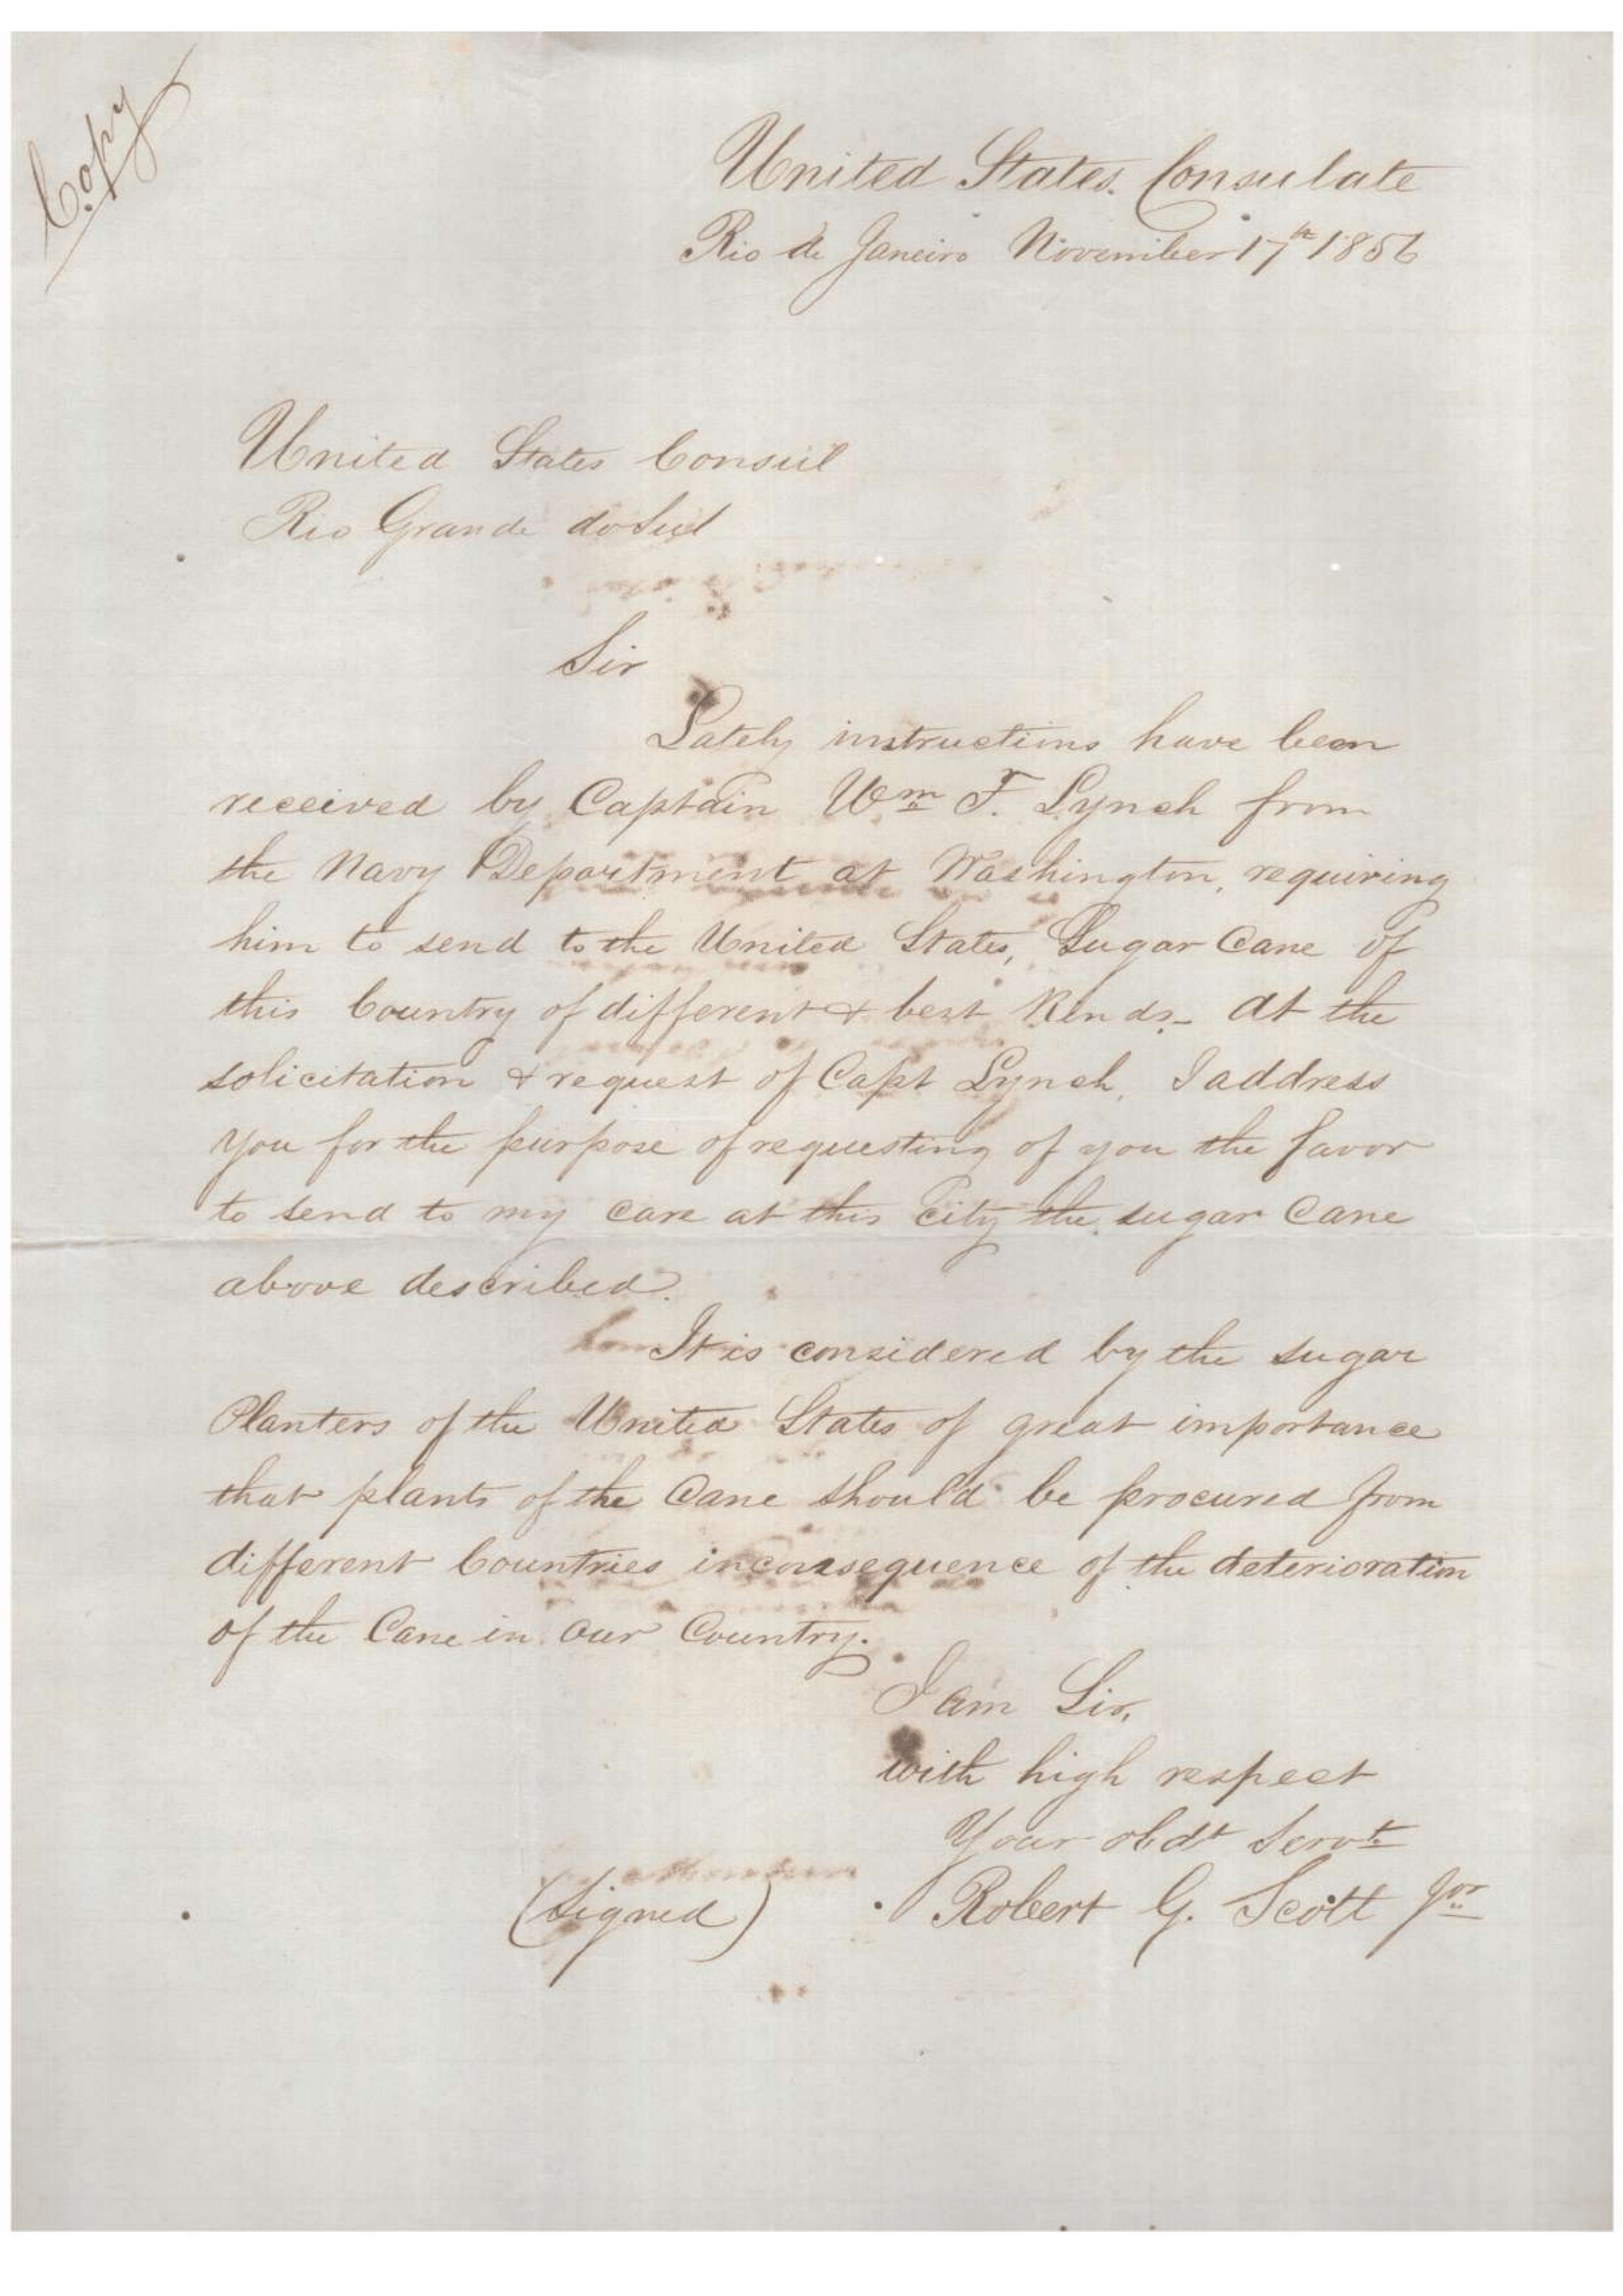 Copy
United States Consulate
Rio de Janeiro November 17th 1856
United States Consul
Rio Grande do Sul
Sir
Lately instructions have been
received by Captain Wm F. Lynch from
the Navy Department at Washington, requiring
him to send to the United States, Sugar Cane of
this Country of different & best Kinds - At the
solicitation & request of Capt Lynch, I address
you for the purpose of requesting of you the favor
to send to my care at this City the sugar Cane
above described.
It is considered by the sugar
Planters of the United States of great importance
that plants of the Cane should be procured from
different Countries in consequence of the deterioration
of the Cane in our Country.
I am Sir,
with high respect
Your obdt Servt
(Signed) Robert G. Scott Jnr